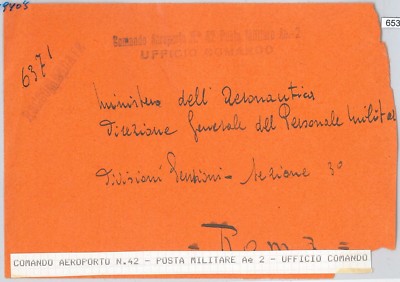 9405
653
6371
Comando Aeroporto N° 42 Posta Militare Ae-2
UFFICIO COMANDO
Ministero dell'Aeronautica
Direzione Generale del Personale Militar
Divisioni Pensioni - Sezione 3º
= Roma =
COMANDO AEROPORTO N.42 - POSTA MILITARE Ae 2 - UFFICIO COMANDO